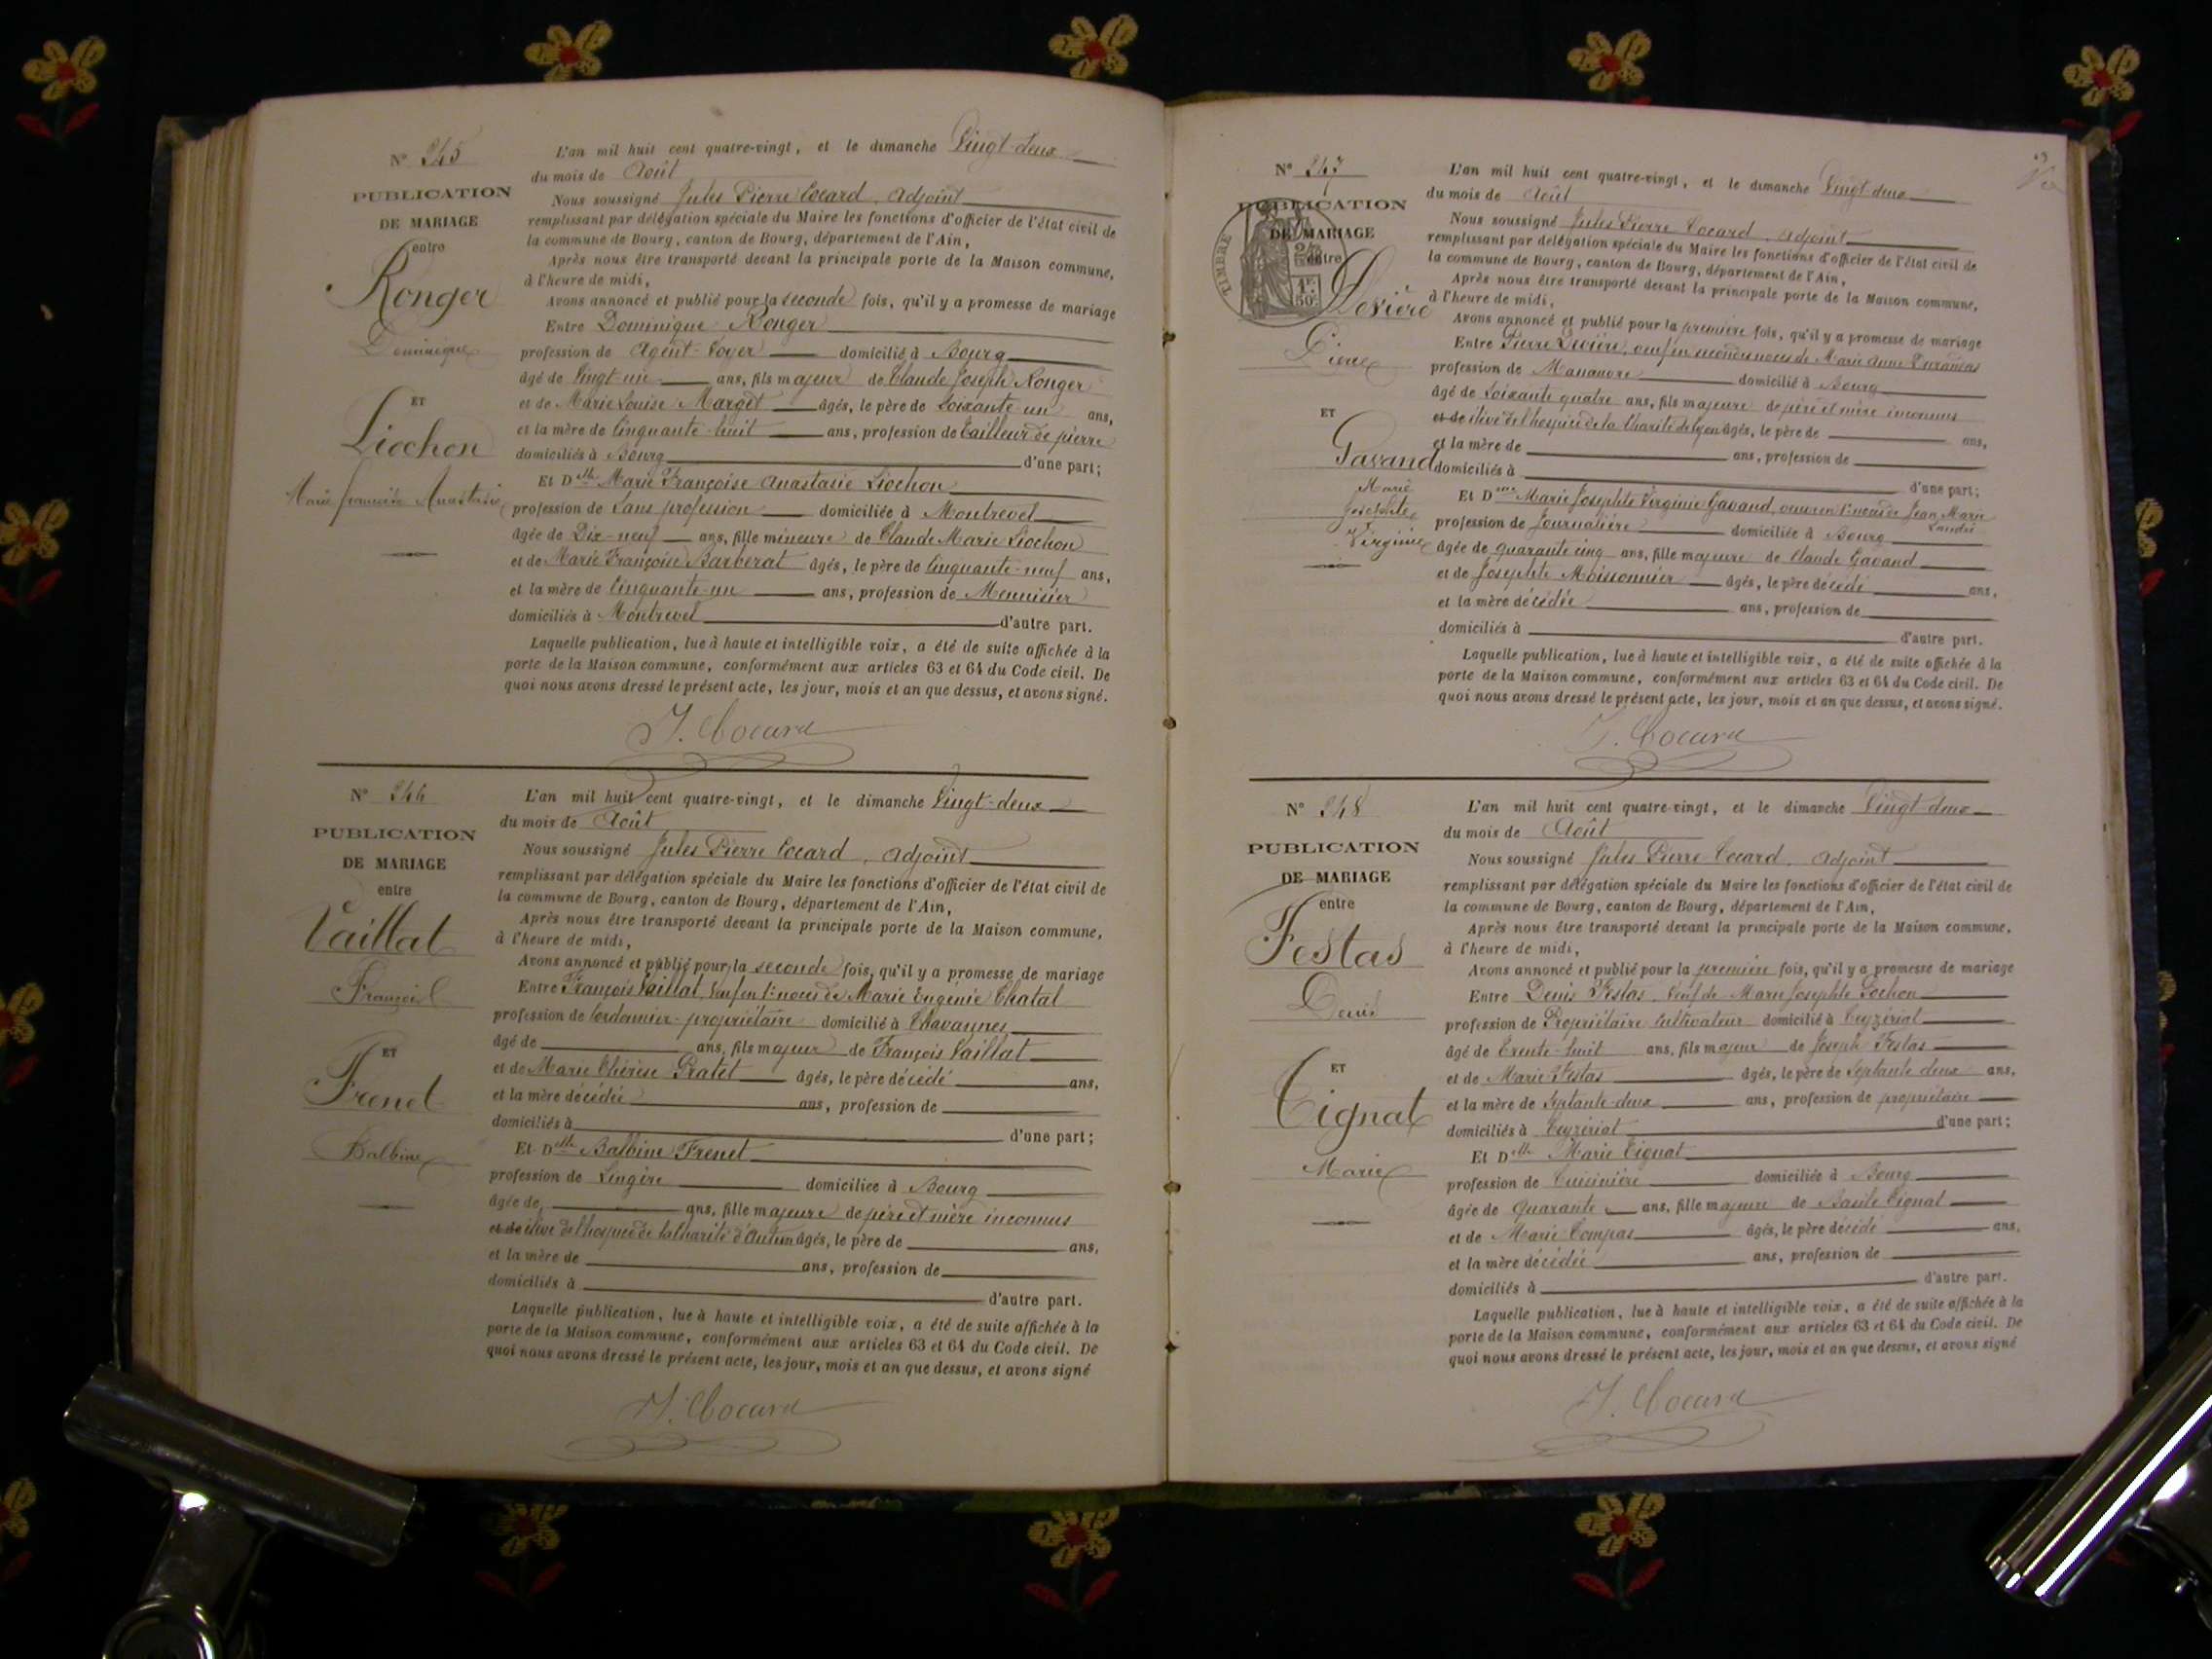 N° 245
PUBLICATION
DE MARIAGE
entre
Ronger
Dominique
ET
Liochon
Marie françoise Anastasie
L'an mil huit cent quatre-vingt, et le dimanche Vingt-deux
du mois de Août
Nous soussigné Jules Pierre Cocard, adjoint
remplissant par délégation spéciale du Maire les fonctions d'officier de l'état civil de
la commune de Bourg, canton de Bourg, département de l'Ain,
Après nous être transporté devant la principale porte de la Maison commune,
à l'heure de midi,
Avons annoncé et publié pour la seconde fois, qu'il y a promesse de mariage
Entre Dominique Ronger
profession de Agent-Voyer domicilié à Bourg
âgé de Vingt-un ans, fils majeur de Claude Joseph Ronger
et de Marie Louise Marget âgés, le père de Soixante un ans,
et la mère de Cinquante-huit ans, profession de Tailleur de pierre
domiciliés à Bourg d'une part;
Et Dlle Marie Françoise Anastasie Liochon
profession de Sans profession domiciliée à Montrevel
âgée de Dix-neuf ans, fille mineure de Claude Marie Liochon
et de Marie Françoise Barberat âgés, le père de Cinquante-neuf ans,
et la mère de Cinquante-un ans, profession de Menuisier
domiciliés à Montrevel d'autre part.
Laquelle publication, lue à haute et intelligible voix, a été de suite affichée à la
porte de la Maison commune, conformément aux articles 63 et 64 du Code civil. De
quoi nous avons dressé le présent acte, les jour, mois et an que dessus, et avons signé.
J. Cocard
N° 246
PUBLICATION
DE MARIAGE
entre
Vaillat
François
ET
Frenet
Balbine
L'an mil huit cent quatre-vingt, et le dimanche Vingt-deux
du mois de Août
Nous soussigné Jules Pierre Cocard, adjoint
remplissant par délégation spéciale du Maire les fonctions d'officier de l'état civil de
la commune de Bourg, canton de Bourg, département de l'Ain,
Après nous être transporté devant la principale porte de la Maison commune,
à l'heure de midi,
Avons annoncé et publié pour la seconde fois, qu'il y a promesse de mariage
Entre François Vaillat, veuf en 1res noces de Marie Eugénie Chatal
profession de Cordonnier-propriétaire domicilié à Chavannes
âgé de ans, fils majeur de François Vaillat
et de Marie Thérèse Pratet âgés, le père décédé ans,
et la mère décédée ans, profession de
domiciliés à d'une part;
Et Dlle Balbine Frenet
profession de Lingère domiciliée à Bourg
âgée de ans, fille majeure de père et mère inconnus
et de élève de l'hospice de la charité d'Autun âgés, le père de ans,
et la mère de ans, profession de
domiciliés à d'autre part.
Laquelle publication, lue à haute et intelligible voix, a été de suite affichée à la
porte de la Maison commune, conformément aux articles 63 et 64 du Code civil. De
quoi nous avons dressé le présent acte, les jour, mois et an que dessus, et avons signé
J. Cocard
N° 247
PUBLICATION
DE MARIAGE
entre
TIMBRE
1F
50c
Devière
Pierre
ET
Gavand
Marie
Josephte
Virginie
L'an mil huit cent quatre-vingt, et le dimanche Vingt-deux
du mois de Août
Nous soussigné Jules Pierre Cocard, adjoint
remplissant par délégation spéciale du Maire les fonctions d'officier de l'état civil de
la commune de Bourg, canton de Bourg, département de l'Ain,
Après nous être transporté devant la principale porte de la Maison commune,
à l'heure de midi,
Avons annoncé et publié pour la première fois, qu'il y a promesse de mariage
Entre Pierre Devière, veuf en secondes noces de Marie Anne
profession de Manœuvre domicilié à Bourg
âgé de Soixante quatre ans, fils majeure de père et mère inconnus
et de élève de l'hospice de la Charité de Lyon âgés, le père de ans,
et la mère de ans, profession de
domiciliés à d'une part;
Et Dme Marie Josephte Virginie Gavand, veuve en 1res noces de Jean Marie
profession de Journalière domiciliée à Bourg
âgée de quarante cinq ans, fille majeure de Claude Gavand
et de Josephte Moissonnier âgés, le père décédé ans,
et la mère décédée ans, profession de
domiciliés à d'autre part.
Laquelle publication, lue à haute et intelligible voix, a été de suite affichée à la
porte de la Maison commune, conformément aux articles 63 et 64 du Code civil. De
quoi nous avons dressé le présent acte, les jour, mois et an que dessus, et avons signé.
J. Cocard
N° 248
PUBLICATION
DE MARIAGE
entre
Festas
Denis
ET
Tignat
Marie
L'an mil huit cent quatre-vingt, et le dimanche Vingt-deux
du mois de Août
Nous soussigné Jules Pierre Cocard, adjoint
remplissant par délégation spéciale du Maire les fonctions d'officier de l'état civil de
la commune de Bourg, canton de Bourg, département de l'Ain,
Après nous être transporté devant la principale porte de la Maison commune,
à l'heure de midi,
Avons annoncé et publié pour la première fois, qu'il y a promesse de mariage
Entre Denis Festas, veuf de Marie Josephte Sochon
profession de Propriétaire Cultivateur domicilié à Ceyzériat
âgé de Trente-huit ans, fils majeur de Joseph Festas
et de Marie Festas âgés, le père de Septante deux ans,
et la mère de Septante-deux ans, profession de propriétaire
domiciliés à Ceyzériat d'une part;
Et Dlle Marie Tignat
profession de Cuisinière domiciliée à Bourg
âgée de Quarante ans, fille majeure de Basile Tignat
et de Marie Compas âgés, le père décédé ans,
et la mère décédée ans, profession de
domiciliés à d'autre part.
Laquelle publication, lue à haute et intelligible voix, a été de suite affichée à la
porte de la Maison commune, conformément aux articles 63 et 64 du Code civil. De
quoi nous avons dressé le présent acte, les jour, mois et an que dessus, et avons signé
J. Cocard